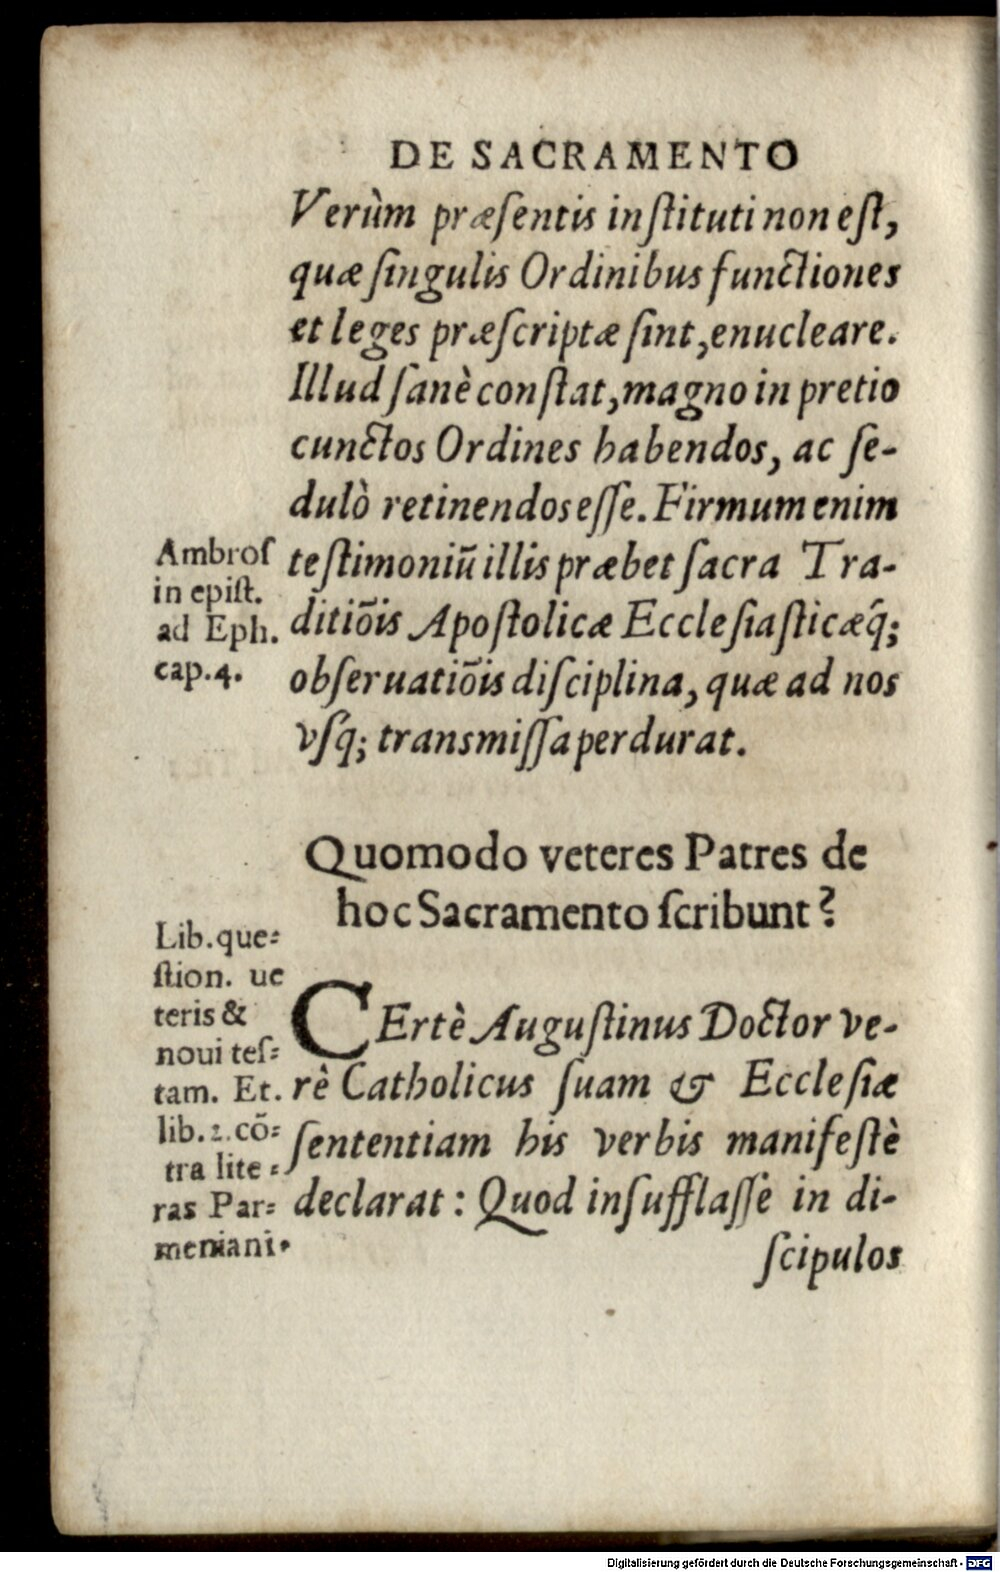 DE SACRAMENTO
Verùm præſentis inſtituti non eſt,
quæ ſingulis Ordinibus functiones
et leges præſcriptæ ſint, enucleare.
Illud ſanè conſtat, magno in pretio
cunctos Ordines habendos, ac ſe-
dulò retinendos eſſe. Firmum enim
teſtimoniũ illis præbet ſacra Tra-
ditiõis Apoſtolicæ Eccleſiaſticæq́;
obſeruatiõis diſciplina, quæ ad nos
vſq; transmiſſa perdurat.
Ambroſ
in epiſt.
ad Eph.
cap.4.
Quomodo veteres Patres de
hoc Sacramento ſcribunt?
Lib. que=
ſtion. ue
teris &
noui teſ=
tam. Et.
lib. 2. cõ=
tra lite=
ras Par=
meniani.
CErtè Auguſtinus Doctor ve-
rè Catholicus ſuam & Eccleſiæ
ſententiam his verbis manifeſtè
declarat: Quod inſufflaſſe in di-
ſcipulos
Digitalisierung gefördert durch die Deutsche Forschungsgemeinschaft - DFG